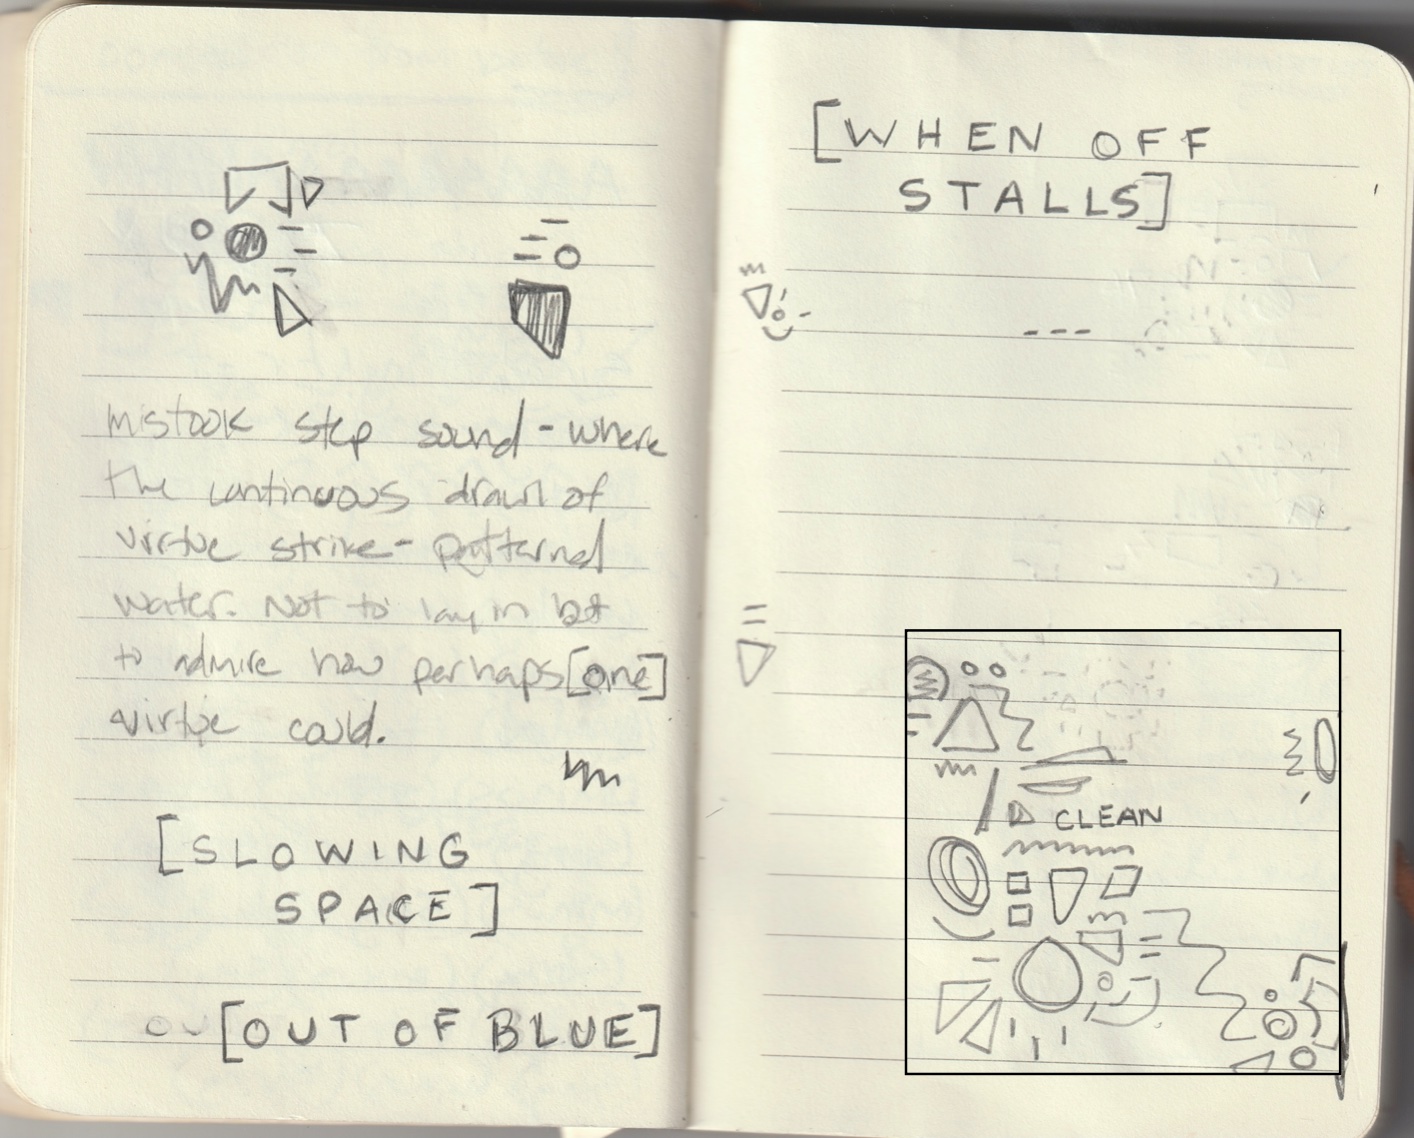 mistook step sound - where
the continuous drawl of
virtue strike - patterned
water. Not to lay in bet
to admire how perhaps [one]
virtue could.
[SLOWING
SPACE]
OU [OUT OF BLUE]
[WHEN OFF
STALLS]
- - -
CLEAN